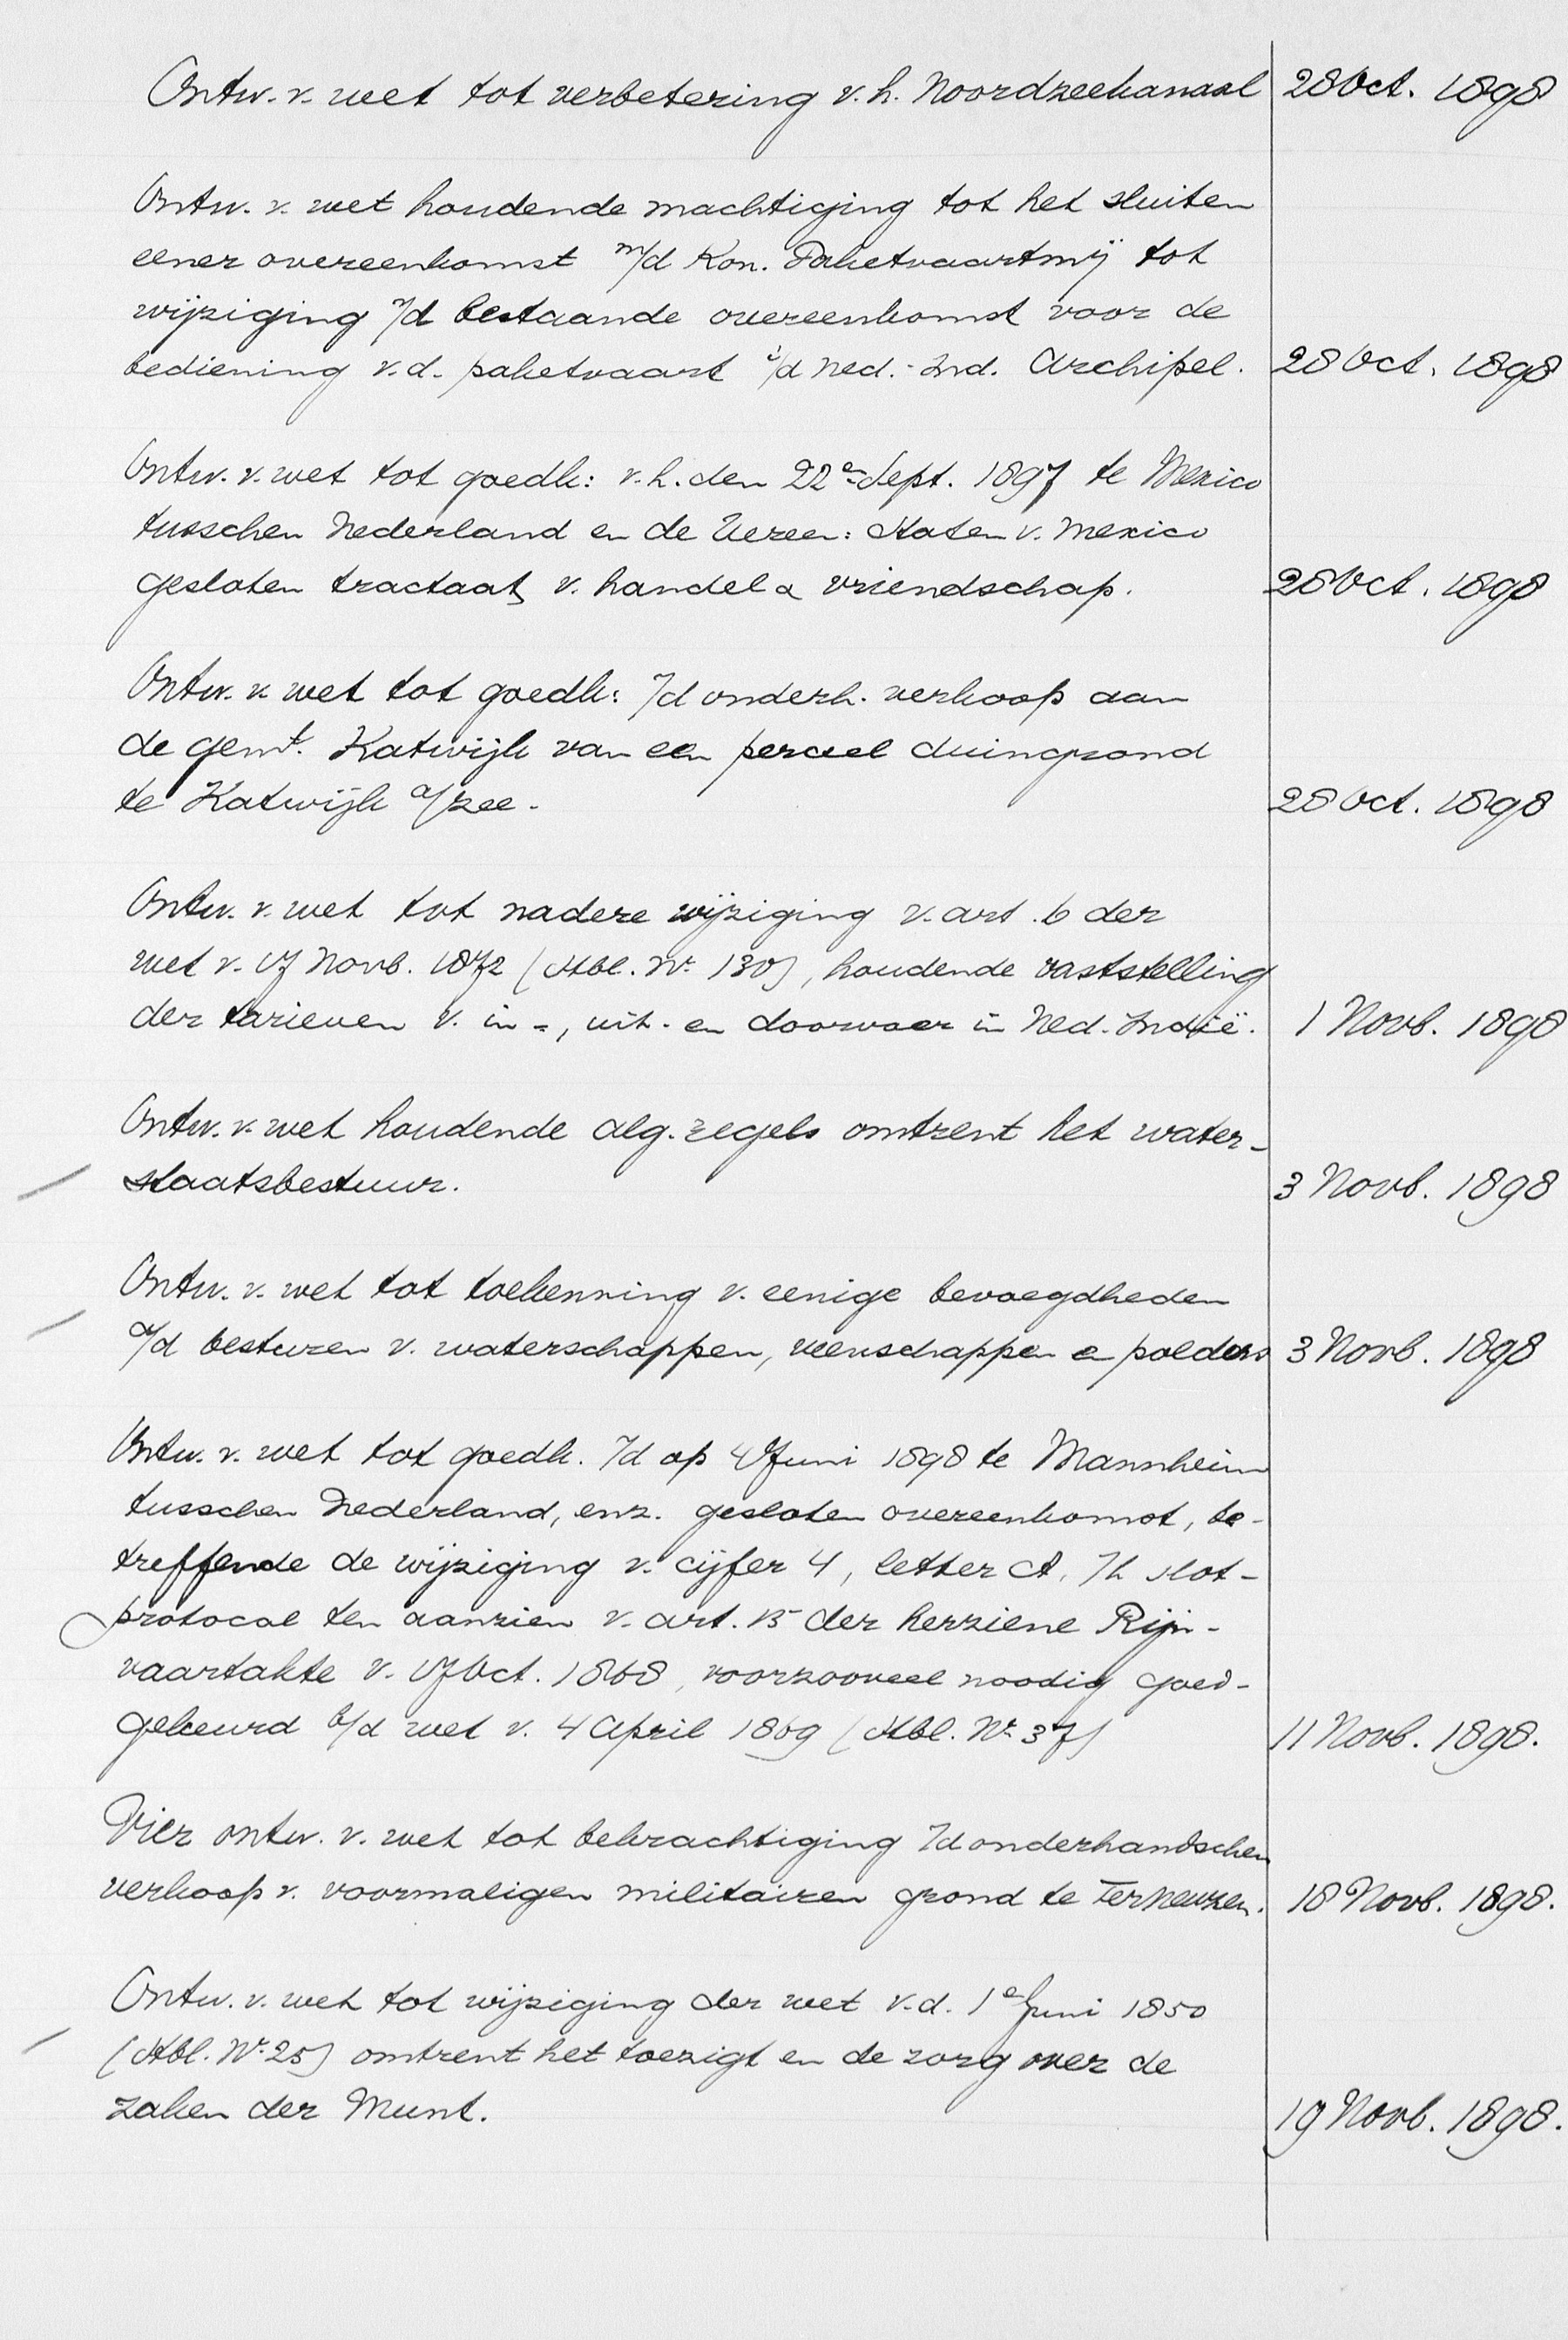 Ontw. v. wet tot verbetering v. h. Noordzeekanaal 28 Oct. 1898
Ontw. v. wet houdende machtiging tot het sluiten
eener overeenkomst m/d Kon. Paketvaartmij tot
wijziging v/d bestaande overeenkomst voor de
bediening v. d. paketvaart i/d Ned.-Ind. Archipel. 28 Oct. 1898
Ontw. v. wet tot goedk: v. h. den 22e Sept. 1897 te Mexico
tusschen Nederland en de Vereen: Staten v. Mexico
gesloten tractaat v. handel & vriendschap. 28 Oct. 1898
Ontw. v. wet tot goedk: v/d onderh. verkoop aan
de gemt. Katwijk van een perceel duingrond
te Katwijk a/zee. 28 Oct. 1898
Ontw. v. wet tot nadere wijziging v. art. 6 der
wet v. 17 Novb. 1872 (Stbl. No. 130), houdende vaststelling
der tarieven v. in-, uit- en doorvoer in Ned. Indië. 1 Novb. 1898
Ontw. v. wet houdende alg. regels omtrent het water-
staatsbestuur. 3 Novb. 1898
Ontw. v. wet tot toekenning v. eenige bevoegdheden
a/d besturen v. waterschappen, veenschappen en polders 3 Novb. 1898
Ontw. v. wet tot goedk. v/d op 4 Juni 1898 te Mannheim
tusschen Nederland, enz. gesloten overeenkomst, be-
treffende de wijziging v. cijfer 4, letter A, v/h slot-
protocol ten aanzien v. art. 15 der herziene Rijn-
vaartakte v. 17 Oct. 1868, voorzooveel noodig goed-
gekeurd b/d wet v. 4 April 1869 (Stbl. No. 37) 11 Novb. 1898.
Vier ontw. v. wet tot bekrachtiging v/d onderhandschen
verkoop v. voormaligen militairen grond te Terneuzen. 18 Novb. 1898.
Ontw. v. wet tot wijziging der wet v. d. 1e Juni 1850
(Stbl. No. 25) omtrent het toezigt en de zorg over de
zaken der Munt. 19 Novb. 1898.